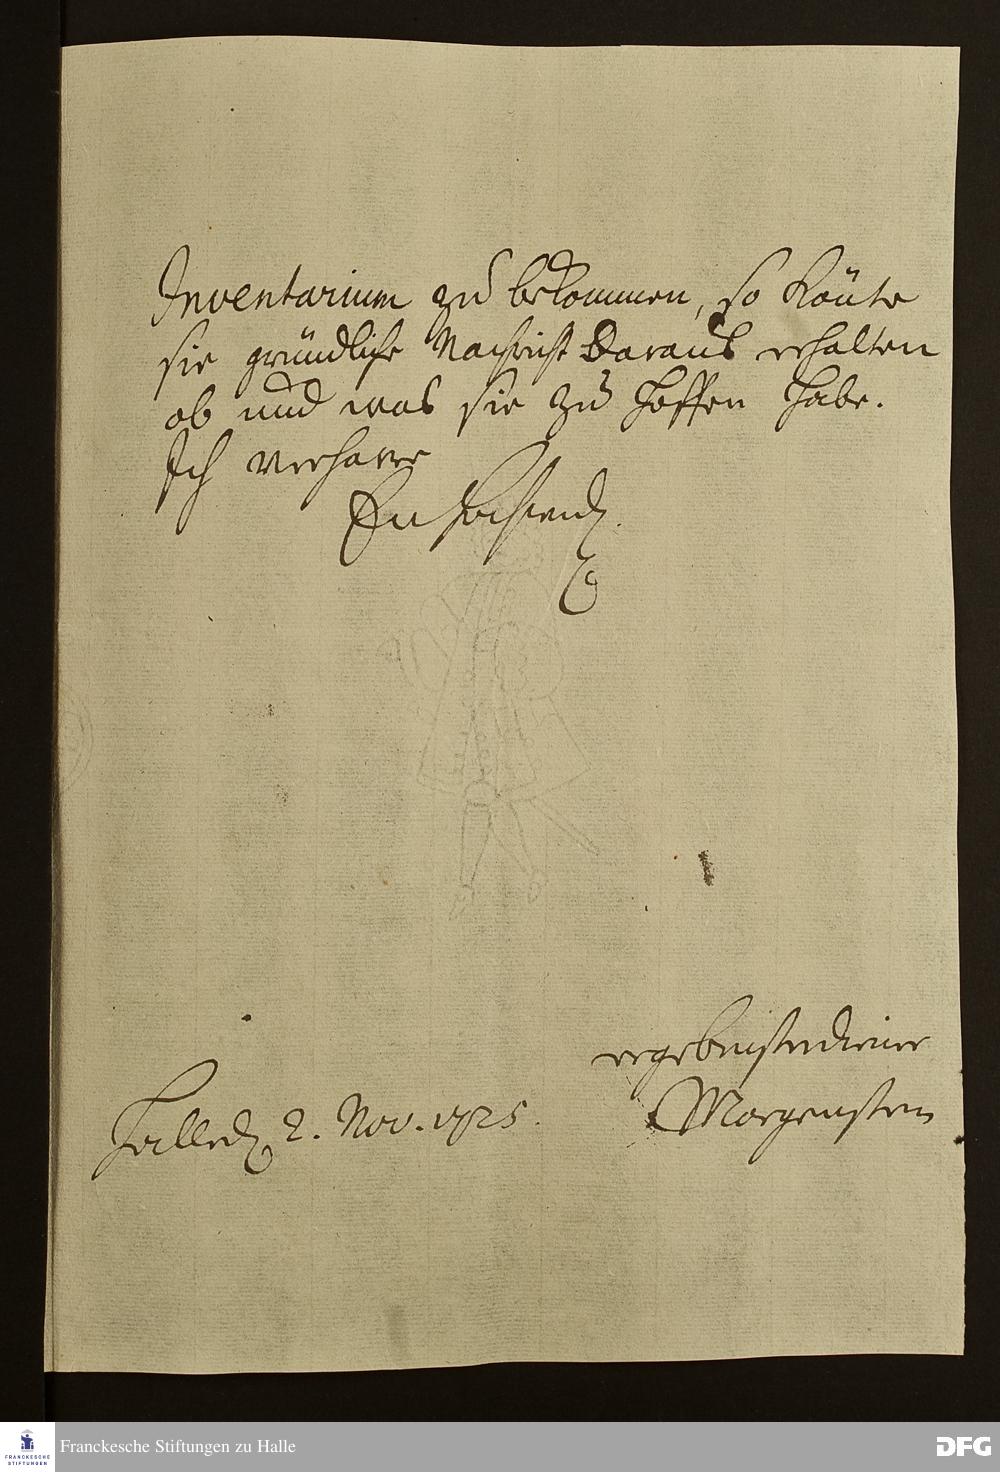 Inventarium zu bekommen, so könte
sie gründliche Nachricht daraus erhalten
ob und was sie zu hoffen habe.
Ich verharre
Ew Hochehrwd.
ergebenster diener
Morgenstern
Halle d. 2. Nov. 1725.
Franckesche Stiftungen zu Halle
FRANCKESCHE
STIFTUNGEN
DFG